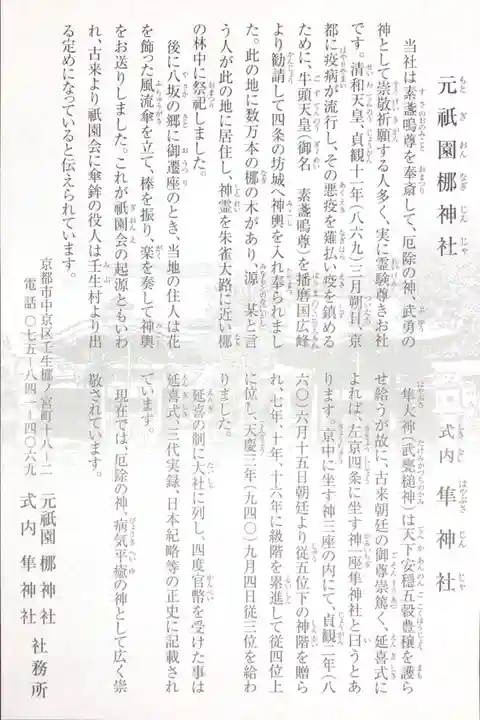 元祇園梛神社
当社は素盞嗚尊を奉斎して、厄除の神、武勇の
神として崇敬祈願する人多く、実に霊験尊きお社
です。清和天皇、貞観十一年(八六九)三月朔日、京
都に疫病が流行し、その悪疫を難払い疫を鎮める
ために、牛頭天皇(御名 素盞嗚尊)を播磨国広峰
より勧請して四条の坊城へ神輿を入れ奉られまし
た。此の地に数万本の梛の木があり、源 某と言
う人が此の地に居住し、神霊を朱雀大路に近い梛
の林中に祭祀しました。
後に八坂の郷に御遷座のとき、当地の住人は花
を飾った風流傘を立て、棒を振り、楽を奏して神輿
をお送りしました。これが祇園会の起源ともいわ
れ、古来より祇園会に傘鉾の役人は壬生村より出
る定めになっていると伝えられています。
京都市中京区壬生梛ノ宮町十八-二
電話 〇七五-八四一-四〇六九
式内 隼神社
隼大神(武甕槌神)は天下安穏五穀豊穣を護ら
せ給うが故に、古来朝廷の御尊崇篤く、延喜式に
よれば、左京四条に坐す神一座隼神社と曰うとあ
ります。京中に坐す神三座の内にて、貞観二年(八
六〇)六月十五日朝廷より従五位下の神階を贈ら
れ、七年、十年、十六年に級階を累進して従四位上
に位し、天慶三年(九四〇)九月四日従三位を給わ
りました。
延喜の制に大社に列し、四度官幣を受けた事は
延喜式、三代実録、日本紀略等の正史に記載され
ています。
現在では、厄除の神、病気平癒の神として広く崇
敬されています。
元祇園梛神社
式内隼神社 社務所